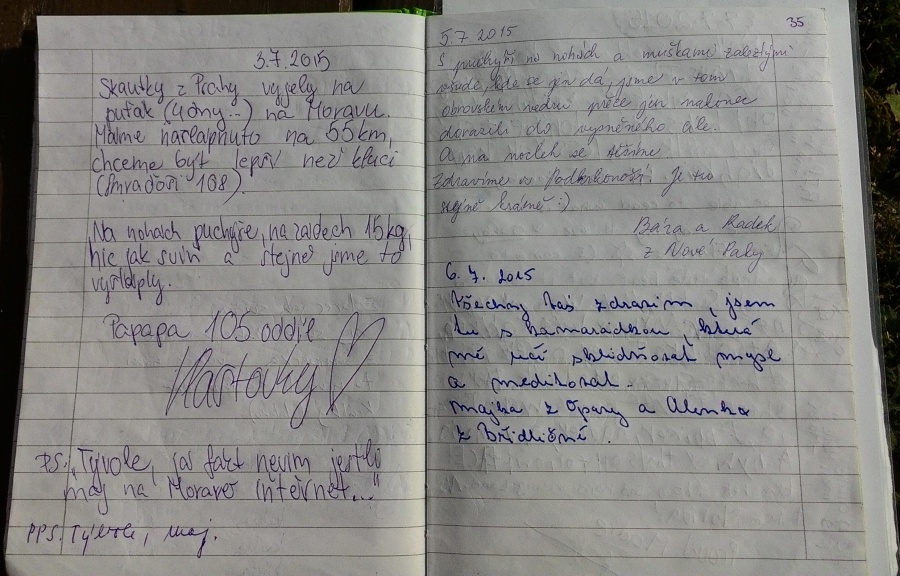 3.7.2015
Skautky z Prahy vyjely na
puťák (4dny...) na Moravu.
Máme našlapnuto na 55km,
chceme být lepší než kluci
(smraďoši 108).
Na nohách puchýře, na zádech 15kg,
hic jak sviň a stejně jsme to
vyšláply.
Papapa 105. oddíl
Vlaštovky
PS: „Tyvole, já fakt nevim jestli
maj na Moravě internet..."
PPS. Tyvole, maj.
35
5.7.2015
S puchýři na nohách a muškami zalezlými
všude, kde se jen dá, jsme v tom
obrovském vedru přece jen nakonec
dorazili do vysněného cíle.
A na nocleh se těšíme
Zdravíme z Podkrkonoší. Je tu
stejně krásně :)
Bára a Radek
z Nové Paky
6. 7. 2015
Všechny Vás zdravím, jsem
tu s kamarádkou, která
mě učí zklidňovat mysl
a meditovat.
Majka z Opavy a Alenka
z Břidličné.